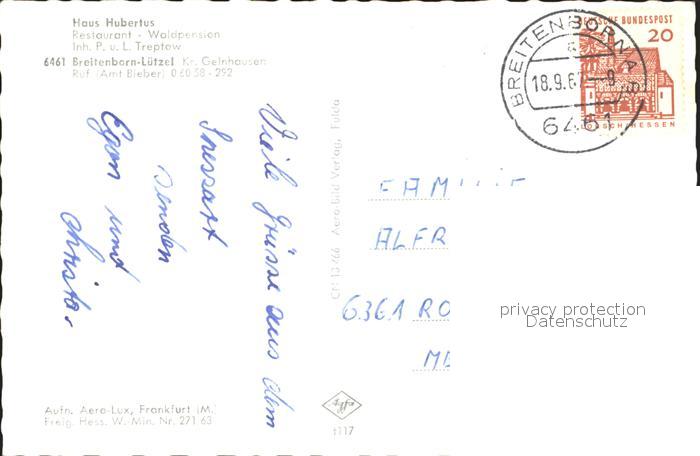 Haus Hubertus
Restaurant - Waldpension
Inh. P. u. L. Treptow
6461 Breitenborn-Lützel Kr. Gelnhausen
Ruf (Amt Bieber) 0 60 58 - 292
Viele Grüsse aus dem
Spessart
senden
Egon und
Christa.
CN 13466 Aero-Bild Verlag, Fulda
DEUTSCHE BUNDESPOST
20
BREITENBORN
18.9.67-9
6461
HESSEN
FAMILIE
ALFR
6361 RO
privacy protection
Datenschutz
Agfa
t117
Aufn. Aero-Lux, Frankfurt (M.)
Freig. Hess. W.-Min. Nr. 271 63